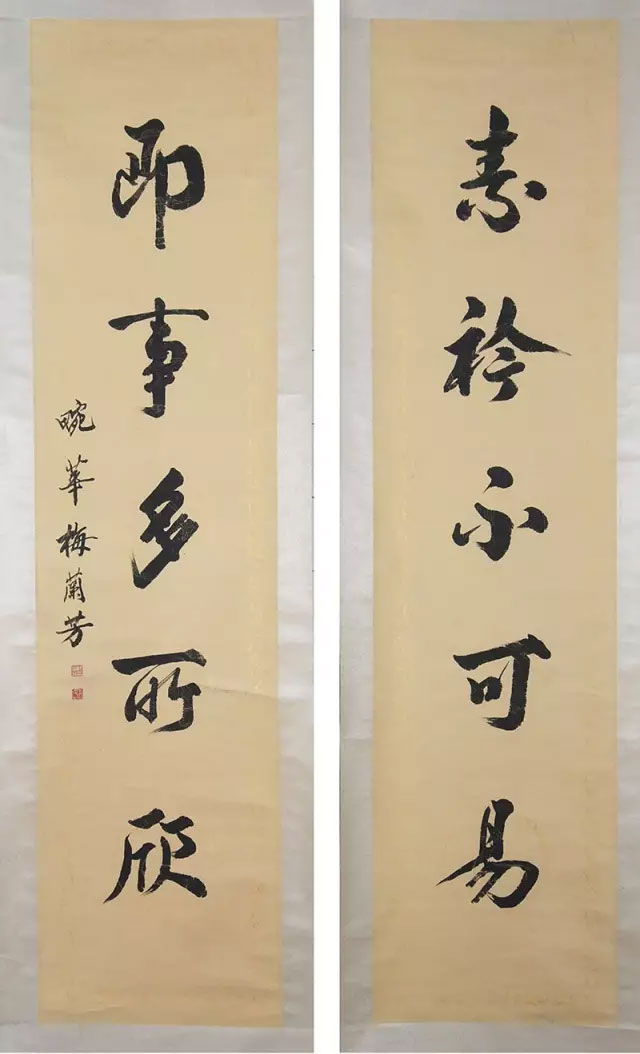 素襟不可易
即事多所欣
畹華梅蘭芳